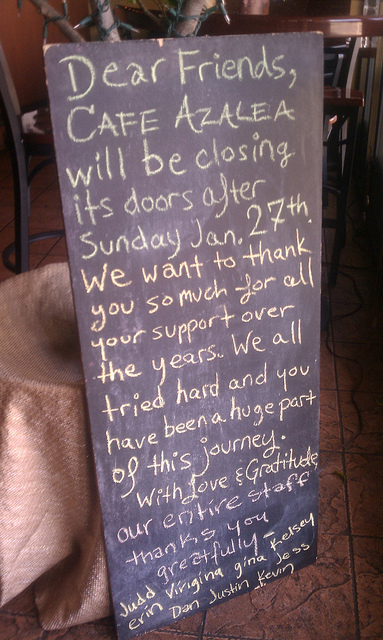 Dear Friends,
CAFE AZALEA
will be closing
its doors after
Sunday Jan. 27th.
We want to thank
you so much for all
your support over
the years. We all
tried hard and you
have been a huge part
of this journey.
With Love & Gratitude,
our entire staff
thanks you
greatfully -
Judd Virigina gina Kelsey
erin Dan Justin Kevin Jess